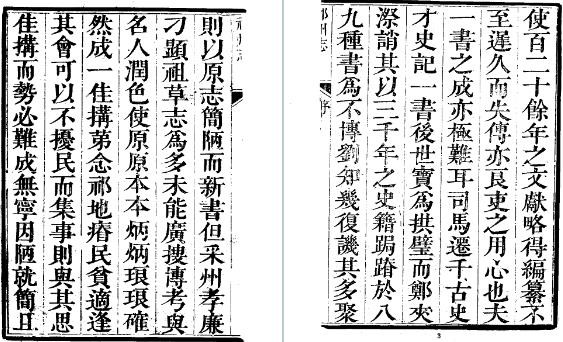 使百二十餘年之文獻略得編纂不
至遲久而失傳亦良吏之用心也夫
一書之成亦極難耳司馬遷千古史
才史記一書後世寶爲拱璧而鄭夾
漈誚其以三千年之史籍跼蹐於八
九種書爲不傳劉知幾復譏其多聚
州志
序
3
則以原志簡陋而新書但采州孝廉
刁顯祖草志爲多未能廣搜博考與
名人潤色使原原本本炳炳琅琅確
然成一佳搆第念祁地瘠民貧適逢
其會可以不擾民而集事則與其思
佳搆而勢必難成無寧因陋就簡且